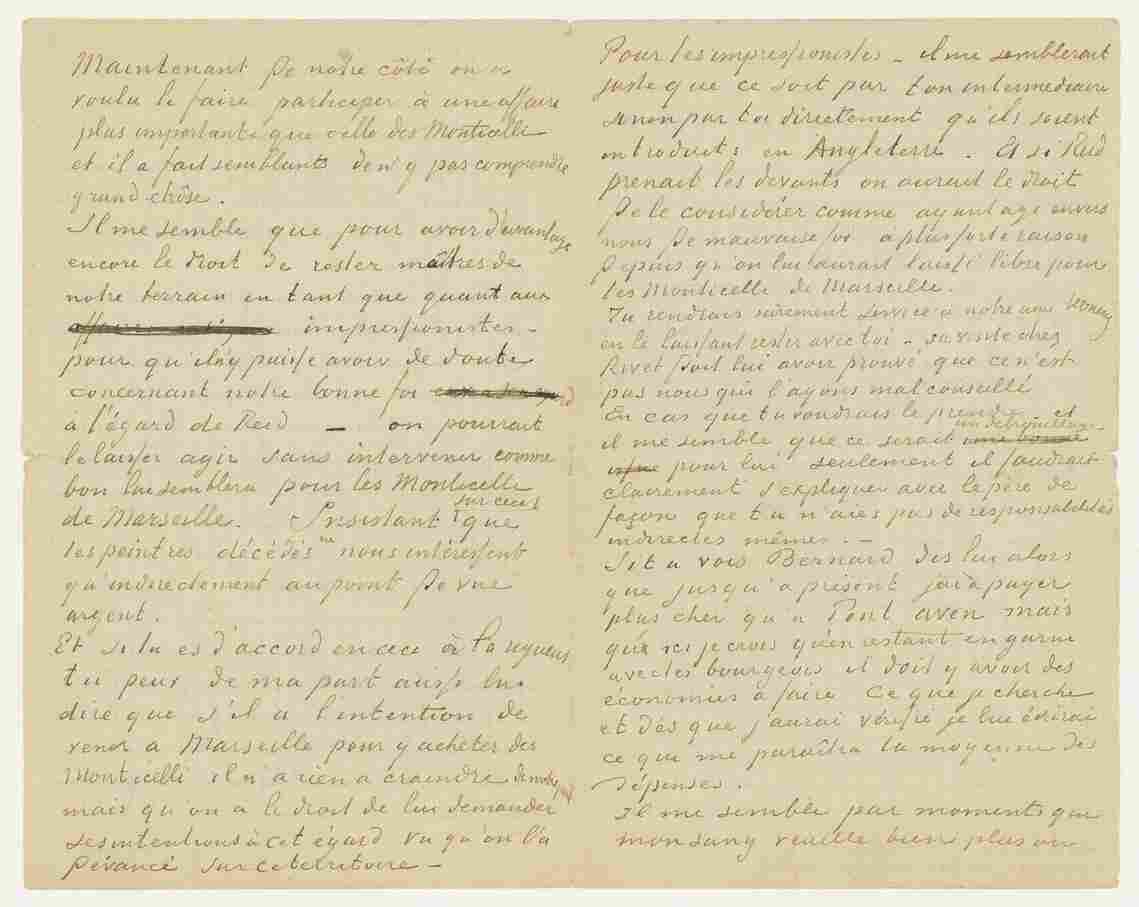 Maintenant de notre côté on a
voulu le faire participer à une affaire
plus importante que celle des Monticelli
et il a fait semblants de n'y pas comprendre
grand chôse.
Il me semble que pour avoir davantage
encore le droit de rester maîtres de
notre terrain en tant que quant aux
impressionistes –
pour qu'il n'y puisse avoir de doute
concernant notre bonne foi
à l'égard de Reid – on pourrait
le laisser agir sans intervenir comme
bon lui semblera pour les Monticelli
de Marseille. Insistant sur ceci que
les peintres décédés ne nous intéressent
qu'indirectement au point de vue
argent.
Et si tu es d'accord en ceci à la rigueur
tu peux de ma part aussi lui
dire que s'il a l'intention de
venir à Marseille pour y acheter des
Monticelli il n'a rien a craindre de nous
mais qu'on a le droit de lui demander
ses intentions à cet égard vu qu'on l'a
dévancé sur ce territoire –
Pour les impressionistes – il me semblerait
juste que ce soit par ton intermédiaire
sinon par toi directement qu'ils soient
introduits en Angleterre. Et si Reid
prenait les devants on aurait le droit
de le considérer comme ayant agi envers
nous de mauvaise foi à plus forte raison
depuis qu'on lui aurait laissé libre pour
les Monticelli de Marseille.
Tu rendrais sûrement service à notre ami Koning
en le laissant rester avec toi – sa visite chez
Rivet doit lui avoir prouvé que ce n'est
pas nous qui l'ayons mal conseillé
En cas que tu voudrais le prendre – et
il me semble que ce serait un débrouillage
pour lui seulement il faudrait
clairement s'expliquer avec le père de
façon que tu n'aies pas de responsabilités
indirectes mêmes. –
Si tu vois Bernard dis lui alors
que jusqu'à présent j'ai à payer
plus cher qu'à Pont aven mais
qu'ici je crois qu'en restant en garni
avec les bourgeois il doit y avoir des
économies à faire Ce que je cherche
et dès que j'aurai vérifié je lui écrirai
ce que me paraîtra la moyenne des
dépenses.
Il me semble par moments que
mon sang veuille bien plus ou